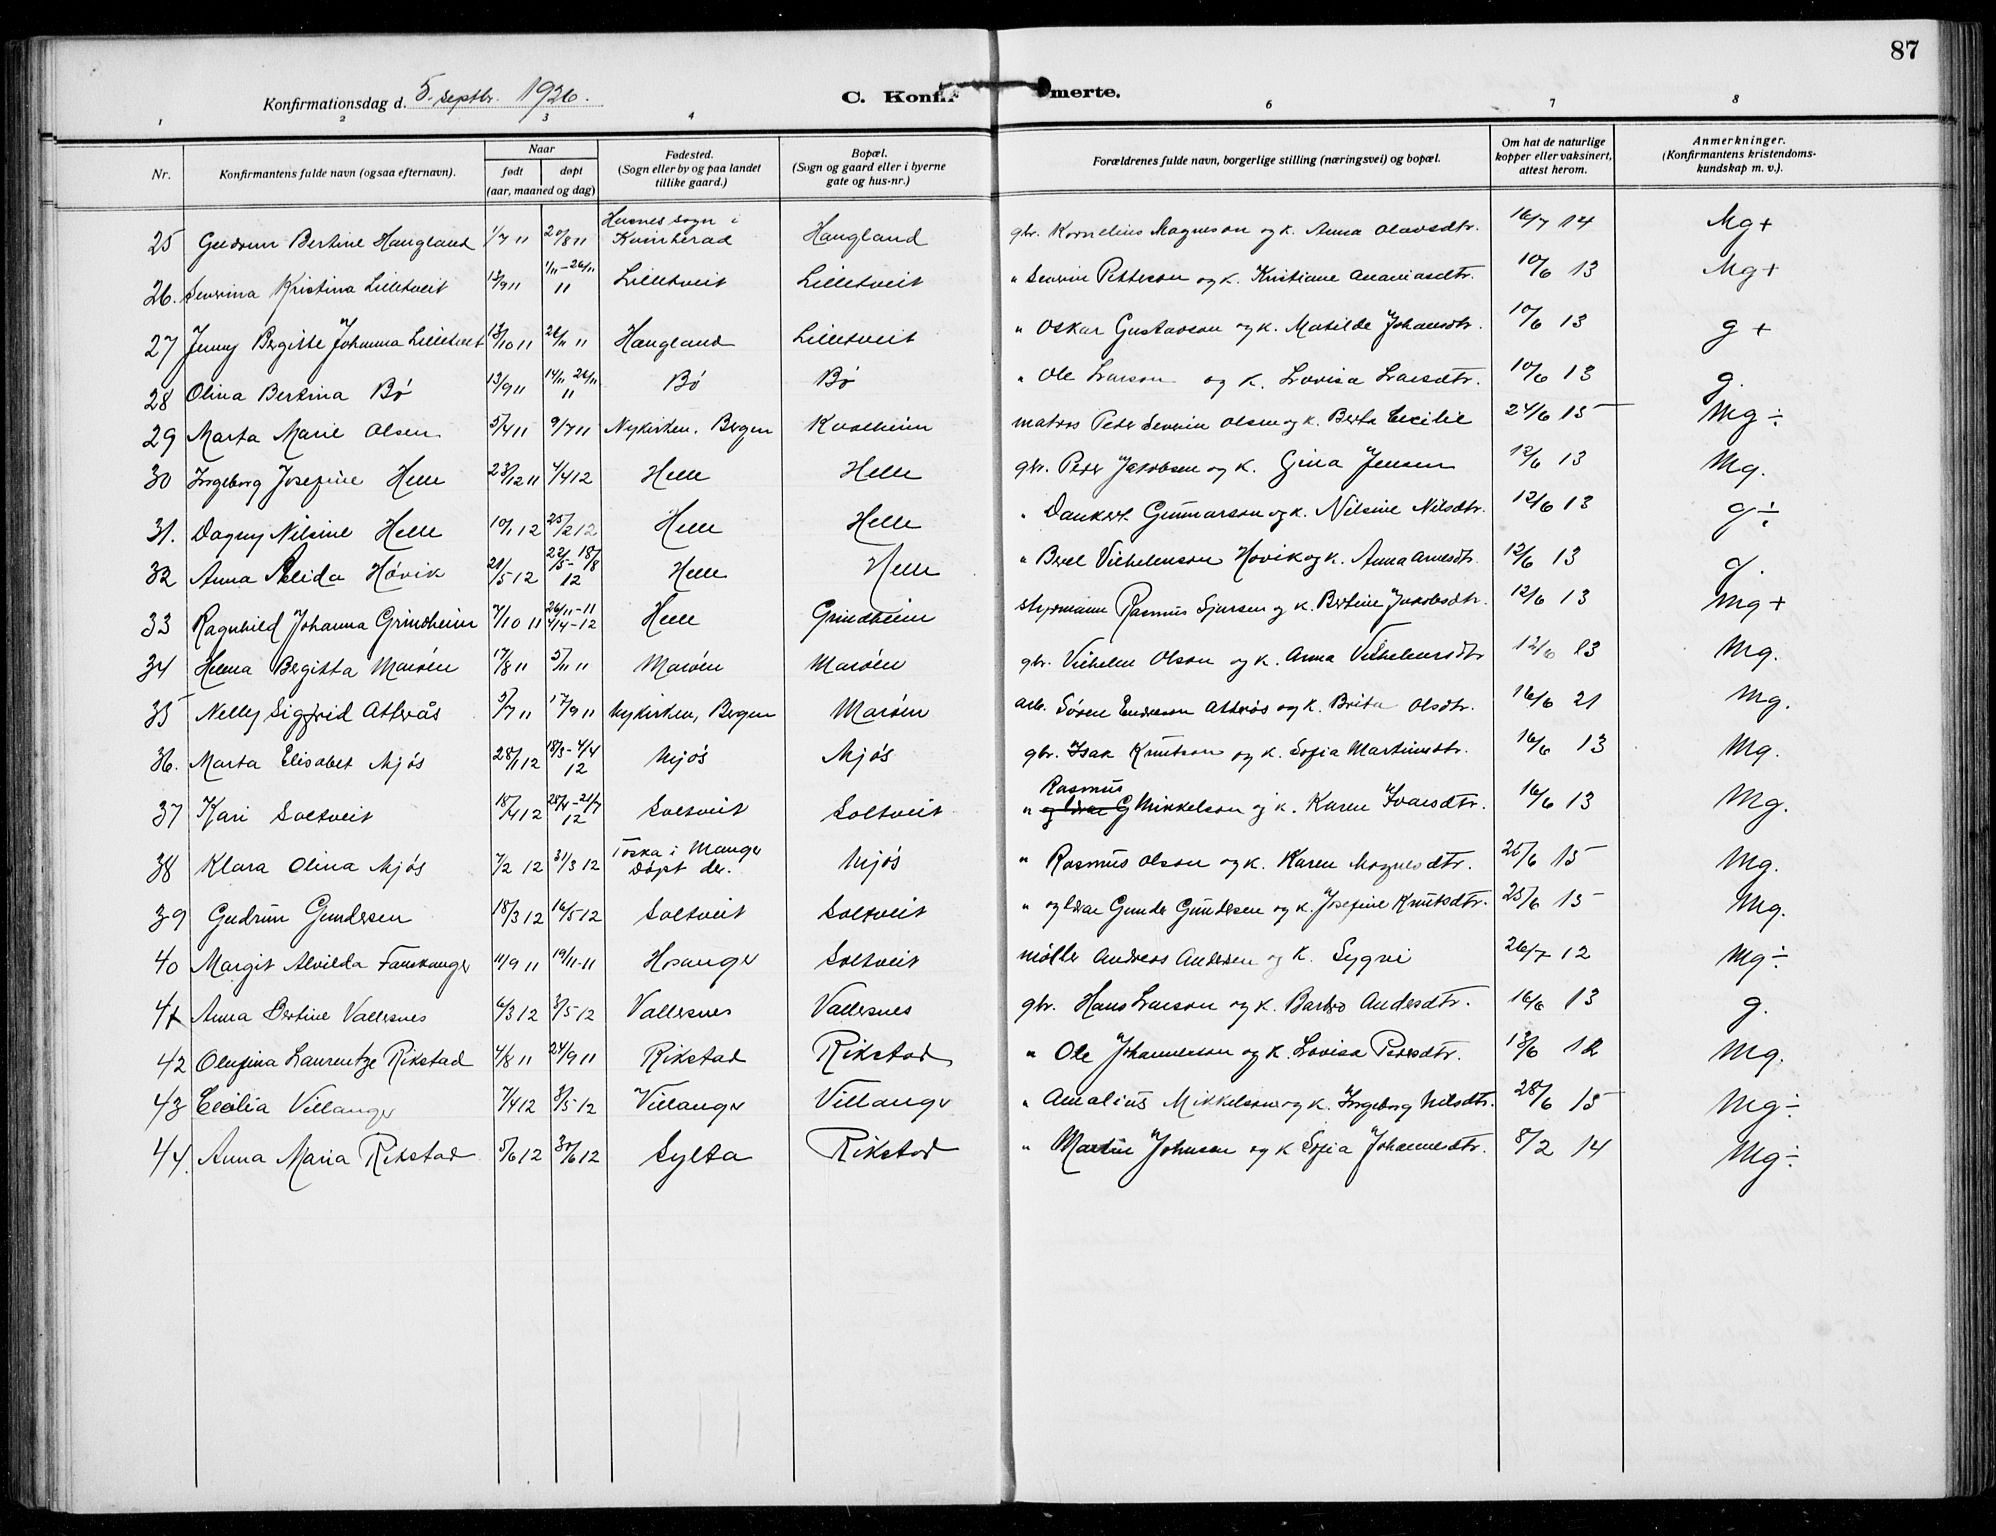 87
Konfirmationsdag d. 5. septbr. 1926.
C. Konfir merte.
1 2 3 4 6 7 8
Nr. Konfirmantens fulde navn (ogsaa efternavn). Naar født døpt (aar, maaned og dag) Fødested. (Sogn eller by og paa landet tillike gaard.) Bopæl. (Sogn og gaard eller i byerne gate og hus-nr.) Forældrenes fulde navn, borgerlige stilling (næringsvei) og bopæl. Om hat de naturlige kopper eller vaksinert, attest herom. Anmerkninger. (Konfirmantens kristendoms- kundskap m. v.).
25 Gudrun Bertine Haugland 1/7 11 20/8 11 Husnes sogn i Kvinherad Haugland gbr. Kornelius Magneson og k. Anna Olavsdtr. 16/7 14 Mg+
26. Severina Kristina Lilletveit 12/9 11 1/11 - 26/11 11 Lilletveit Lilletveit " Severin Petterson og k. Kristiane Ananiasdtr. 10/6 13 Mg+
27 Jenny Bergitte Johanna Lilletveit 12/10 11 26/11 11 Haugland Lilletveit " Oskar Gustavson og k. Matilde Johansdtr. 10/6 13 g+
28 Olina Bertina Bö 13/9 11 14/11 26/11 11 Bö Bö " Ole Larson og k. Lovisa Larsdtr. 10/6 13 g.
29 Marta Marie Olsen 5/4 11 9/7 11 Nykirken, Bergen Kvalheim matros Peder Severin Olsen og k. Berta Cecilie 24/6 15 Mg÷
30 Ingeborg Josefine Helle 23/12 11 4/4 12 Helle Helle gbr. Peder Jakobsen og k. Gina Jensen 12/6 13 Mg.
31. Dagny Nilsine Helle 10/1 12 25/2 12 Helle Helle " Dankert Gunnarson og k. Nilsine Nilsdtr. 12/6 13 g÷
32 Anna Alida Hövik 21/5 12 22/5 - 18/8 12 Helle Helle " Berel Vilhelmson Hovik og k. Anna Arnesdtr. 12/6 13 g.
33 Ragnhild Johanna Grindheim 7/10 11 26/11 - 11 4/4 - 12 Helle Grindheim styrmann Rasmus Sjursen og k. Bertine Jakobsdtr. 12/6 13 Mg+
34 Helena Bergitta Maröen 17/8 11 5/11 11 Maröen Maröen gbr. Vilhelm Olson og k. Anna Vilhelmsdtr 12/6 13 Mg.
35 Nelly Sigfrid Atterås 3/7 11 17/9 11 Nykirken, Bergen Maröen arb. Sören Endreson Atterås og k. Brita Olsdtr. 16/6 21 Mg.
36. Marta Elisabet Mjös 28/1 12 18/3 - 4/4 12 Mjös Mjös gbr. Isak Knutson og k. Sofia Martinsdtr. 16/6 13 Mg.
37 Kari Soltveit 18/4 12 28/4 - 21/7 12 Soltveit Soltveit " Rasmus Mikkelson og k. Karen Ivarsdtr. 16/6 13 Mg.
38 Klara Olina Mjös 7/2 12 31/3 12 Toska i Manger Döpt der. Mjös " Rasmus Olson og k. Karen Magnesdtr. 25/6 15 Mg.
39 Gudrun Gundersen 18/3 12 16/5 12 Soltveit Soltveit " og lærar Gunder Gundersen og k. Josefine Knutsdtr. 25/6 15 Mg.
40 Margit Alvilda Fauskanger 11/9 11 19/11-11 Hosanger Soltveit möller Andreas Andersen og k. Sygni 26/7 12 Mg÷
41 Anna Bertine Vallersnes 6/3 12 3/5 12 Vallersnes Vallersnes gbr. Hans Larson og k. Barbro Andersdtr. 16/6 13 g.
42 Olufina Laurentze Rikstad 4/8 11 24/9 11 Rikstad Rikstad " Ole Johanneson og k. Lovisa Pedersdtr. 13/6 12 Mg.
43 Cecilia Villanger 7/4 12 3/5 12 Villanger Villanger " Amalius Mikkelson og k. Ingeborg Nilsdtr. 28/6 15 Mg÷
44. Anna Maria Rikstad 5/6 12 30/6 12 Sylta Rikstad " Martin Johnson og k Sofia Johannesdtr. 8/2 14 Mg÷